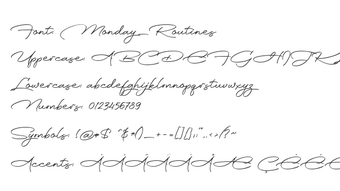 Font: Monday Routines
Uppercase: ABCDEFGHIJK
Lowercase: abcdefghijklmnopqrstuvwxyz
Numbers: 0123456789
Symbols: !@#$
Accents: